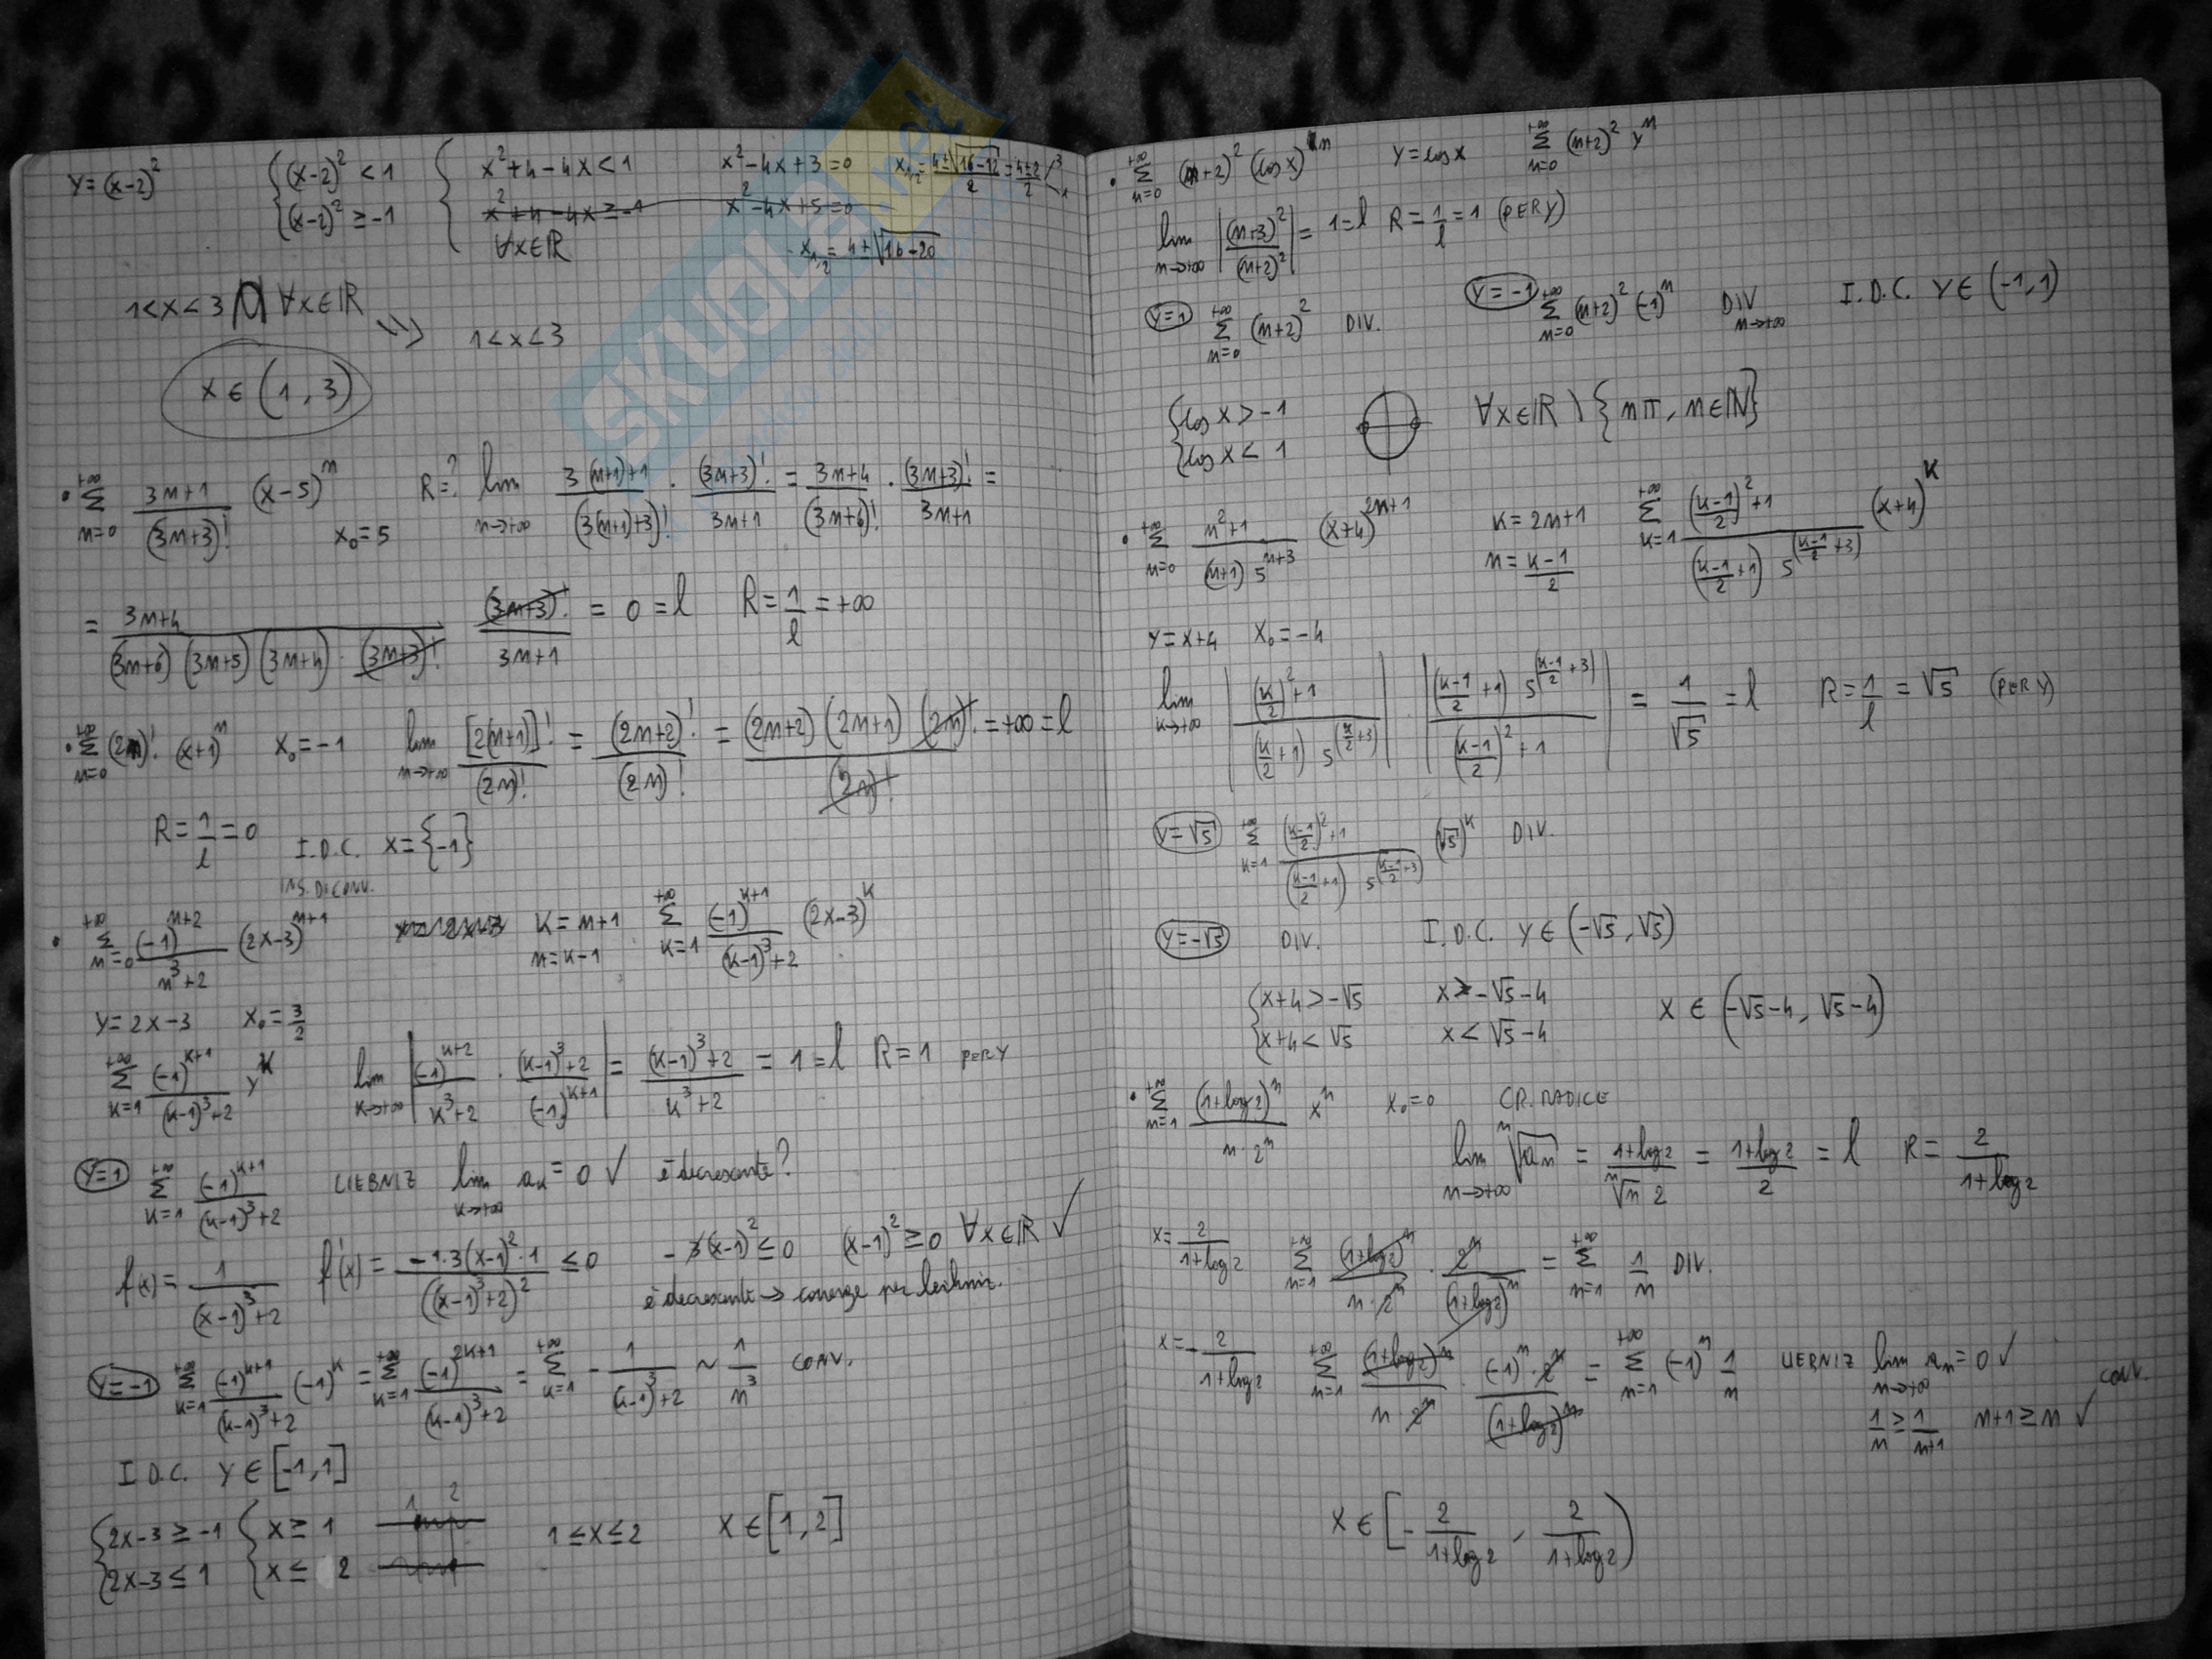 y=(x-2)² {(x-2)² < 1 {x²+4-4x<1 x²-4x+3=0 x₁,₂=4±√16-12/2=4±2/2 3 1
{(x-2)² ≥ -1 x²+4-4x≥-1 x²-4x+5=0
∀x∈ℝ x₁,₂=4±√16-20
1<x<3 ⋂ ∀x∈ℝ
1<x<3
x ∈ (1,3)
• +∞ Σ n=0 3n+1/(3n+3)! (x-5)ⁿ x₀=5 R=? lim n→+∞ 3(n+1)+1/(3(n+1)+3)! · (3n+3)!/3n+1 = 3n+4/(3n+6)! · (3n+3)!/3n+1 =
= 3n+4/(3n+6)(3n+5)(3n+4)·(3n+3)! (3n+3)!/3n+1 = 0 = l R=1/l=+∞
• +∞ Σ n=0 (2n)! (x+1)ⁿ x₀=-1 lim n→+∞ [2(n+1)]!/(2n)! = (2n+2)!/(2n)! = (2n+2)(2n+1)(2n)!/(2n)! = +∞ = l
R=1/l=0 I.D.C. x={-1}
INS. DI CONV.
• +∞ Σ n=0 (-1)ⁿ⁺²/n³+2 (2x-3)ⁿ⁺¹ K=n+1 n=K-1 +∞ Σ K=1 (-1)ᴷ⁺¹/(K-1)³+2 (2x-3)ᴷ
y=2x-3 x₀=3/2
+∞ Σ K=1 (-1)ᴷ⁺¹/(K-1)³+2 yᴷ lim K→+∞ |(-1)ᴷ⁺²/K³+2 · (K-1)³+2/(-1)ᴷ⁺¹| = (K-1)³+2/K³+2 = 1=l R=1 PER Y
y=1 +∞ Σ K=1 (-1)ᴷ⁺¹/(K-1)³+2 LIEBNIZ lim K→+∞ aₖ=0 ✓ è decrescente?
f(x)=1/(x-1)³+2 f'(x)=-1·3(x-1)²·1/((x-1)³+2)² ≤0 -3(x-1)²≤0 (x-1)²≥0 ∀x∈ℝ ✓
è decrescente → converge per Leibniz.
y=-1 +∞ Σ K=1 (-1)ᴷ⁺¹/(K-1)³+2 (-1)ᴷ = +∞ Σ K=1 (-1)²ᴷ⁺¹/(K-1)³+2 = +∞ Σ K=1 -1/(K-1)³+2 ~ 1/n³ CONV.
I.D.C. y∈[-1,1]
{2x-3≥-1 {x≥1 1 2 1≤x≤2 x∈[1,2]
{2x-3≤1 {x≤2
• +∞ Σ n=0 (n+2)² (cos x)ⁿ y=cos x +∞ Σ n=0 (n+2)² yⁿ
lim n→+∞ |(n+3)²/(n+2)²| = 1=l R=1/l=1 (PER Y)
y=1 +∞ Σ n=0 (n+2)² DIV. y=-1 +∞ Σ n=0 (n+2)² (-1)ⁿ DIV n→+∞ I.D.C. y∈(-1,1)
{cos x>-1 ∀x∈ℝ \ {nπ, n∈ℕ}
{cos x<1
• +∞ Σ n=0 n²+1/(n+1) 5ⁿ⁺³ (x+4)²ⁿ⁺¹ K=2n+1 n=K-1/2 +∞ Σ K=1 (K-1/2)²+1/(K-1/2+1) 5^(K-1/2+3) (x+4)ᴷ
y=x+4 x₀=-4
lim K→+∞ |(K/2)²+1/(K/2+1) 5^(K/2+3)| · |(K-1/2+1) 5^(K-1/2+3)/(K-1/2)²+1| = 1/√5 = l R=1/l=√5 (PER Y)
y=√5 +∞ Σ K=1 (K-1/2)²+1/(K-1/2+1) 5^(K-1/2+3) (√5)ᴷ DIV.
y=-√5 DIV. I.D.C. y∈(-√5,√5)
{x+4>-√5 x>-√5-4 x∈(-√5-4, √5-4)
{x+4<√5 x<√5-4
• +∞ Σ n=1 (1+log2)ⁿ/n·2ⁿ xⁿ x₀=0 CR. RADICE
lim n→+∞ ⁿ√aₙ = 1+log2/ⁿ√n 2 = 1+log2/2 = l R=2/1+log2
x=2/1+log2 +∞ Σ n=1 (1+log2)ⁿ/n·2ⁿ · 2ⁿ/(1+log2)ⁿ = +∞ Σ n=1 1/n DIV.
x=-2/1+log2 +∞ Σ n=1 (1+log2)ⁿ/n 2ⁿ · (-1)ⁿ·2ⁿ/(1+log2)ⁿ = +∞ Σ n=1 (-1)ⁿ 1/n LIEBNIZ lim n→+∞ aₙ=0 ✓ CONV.
1/n≥1/n+1 n+1≥n ✓
x∈[-2/1+log2, 2/1+log2)
SKUOLA.net